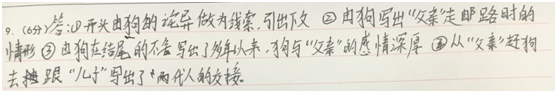 9. (6分) 答:①开头由狗的诧异做为线索,引出下文 ②由狗写出"父亲"走邮路时的
情形 ③由狗在结尾的不舍写出了多年以来,狗与"父亲"的感情深厚 ④从"父亲"赶狗
去 跟"儿子"写出了两代人的交接。